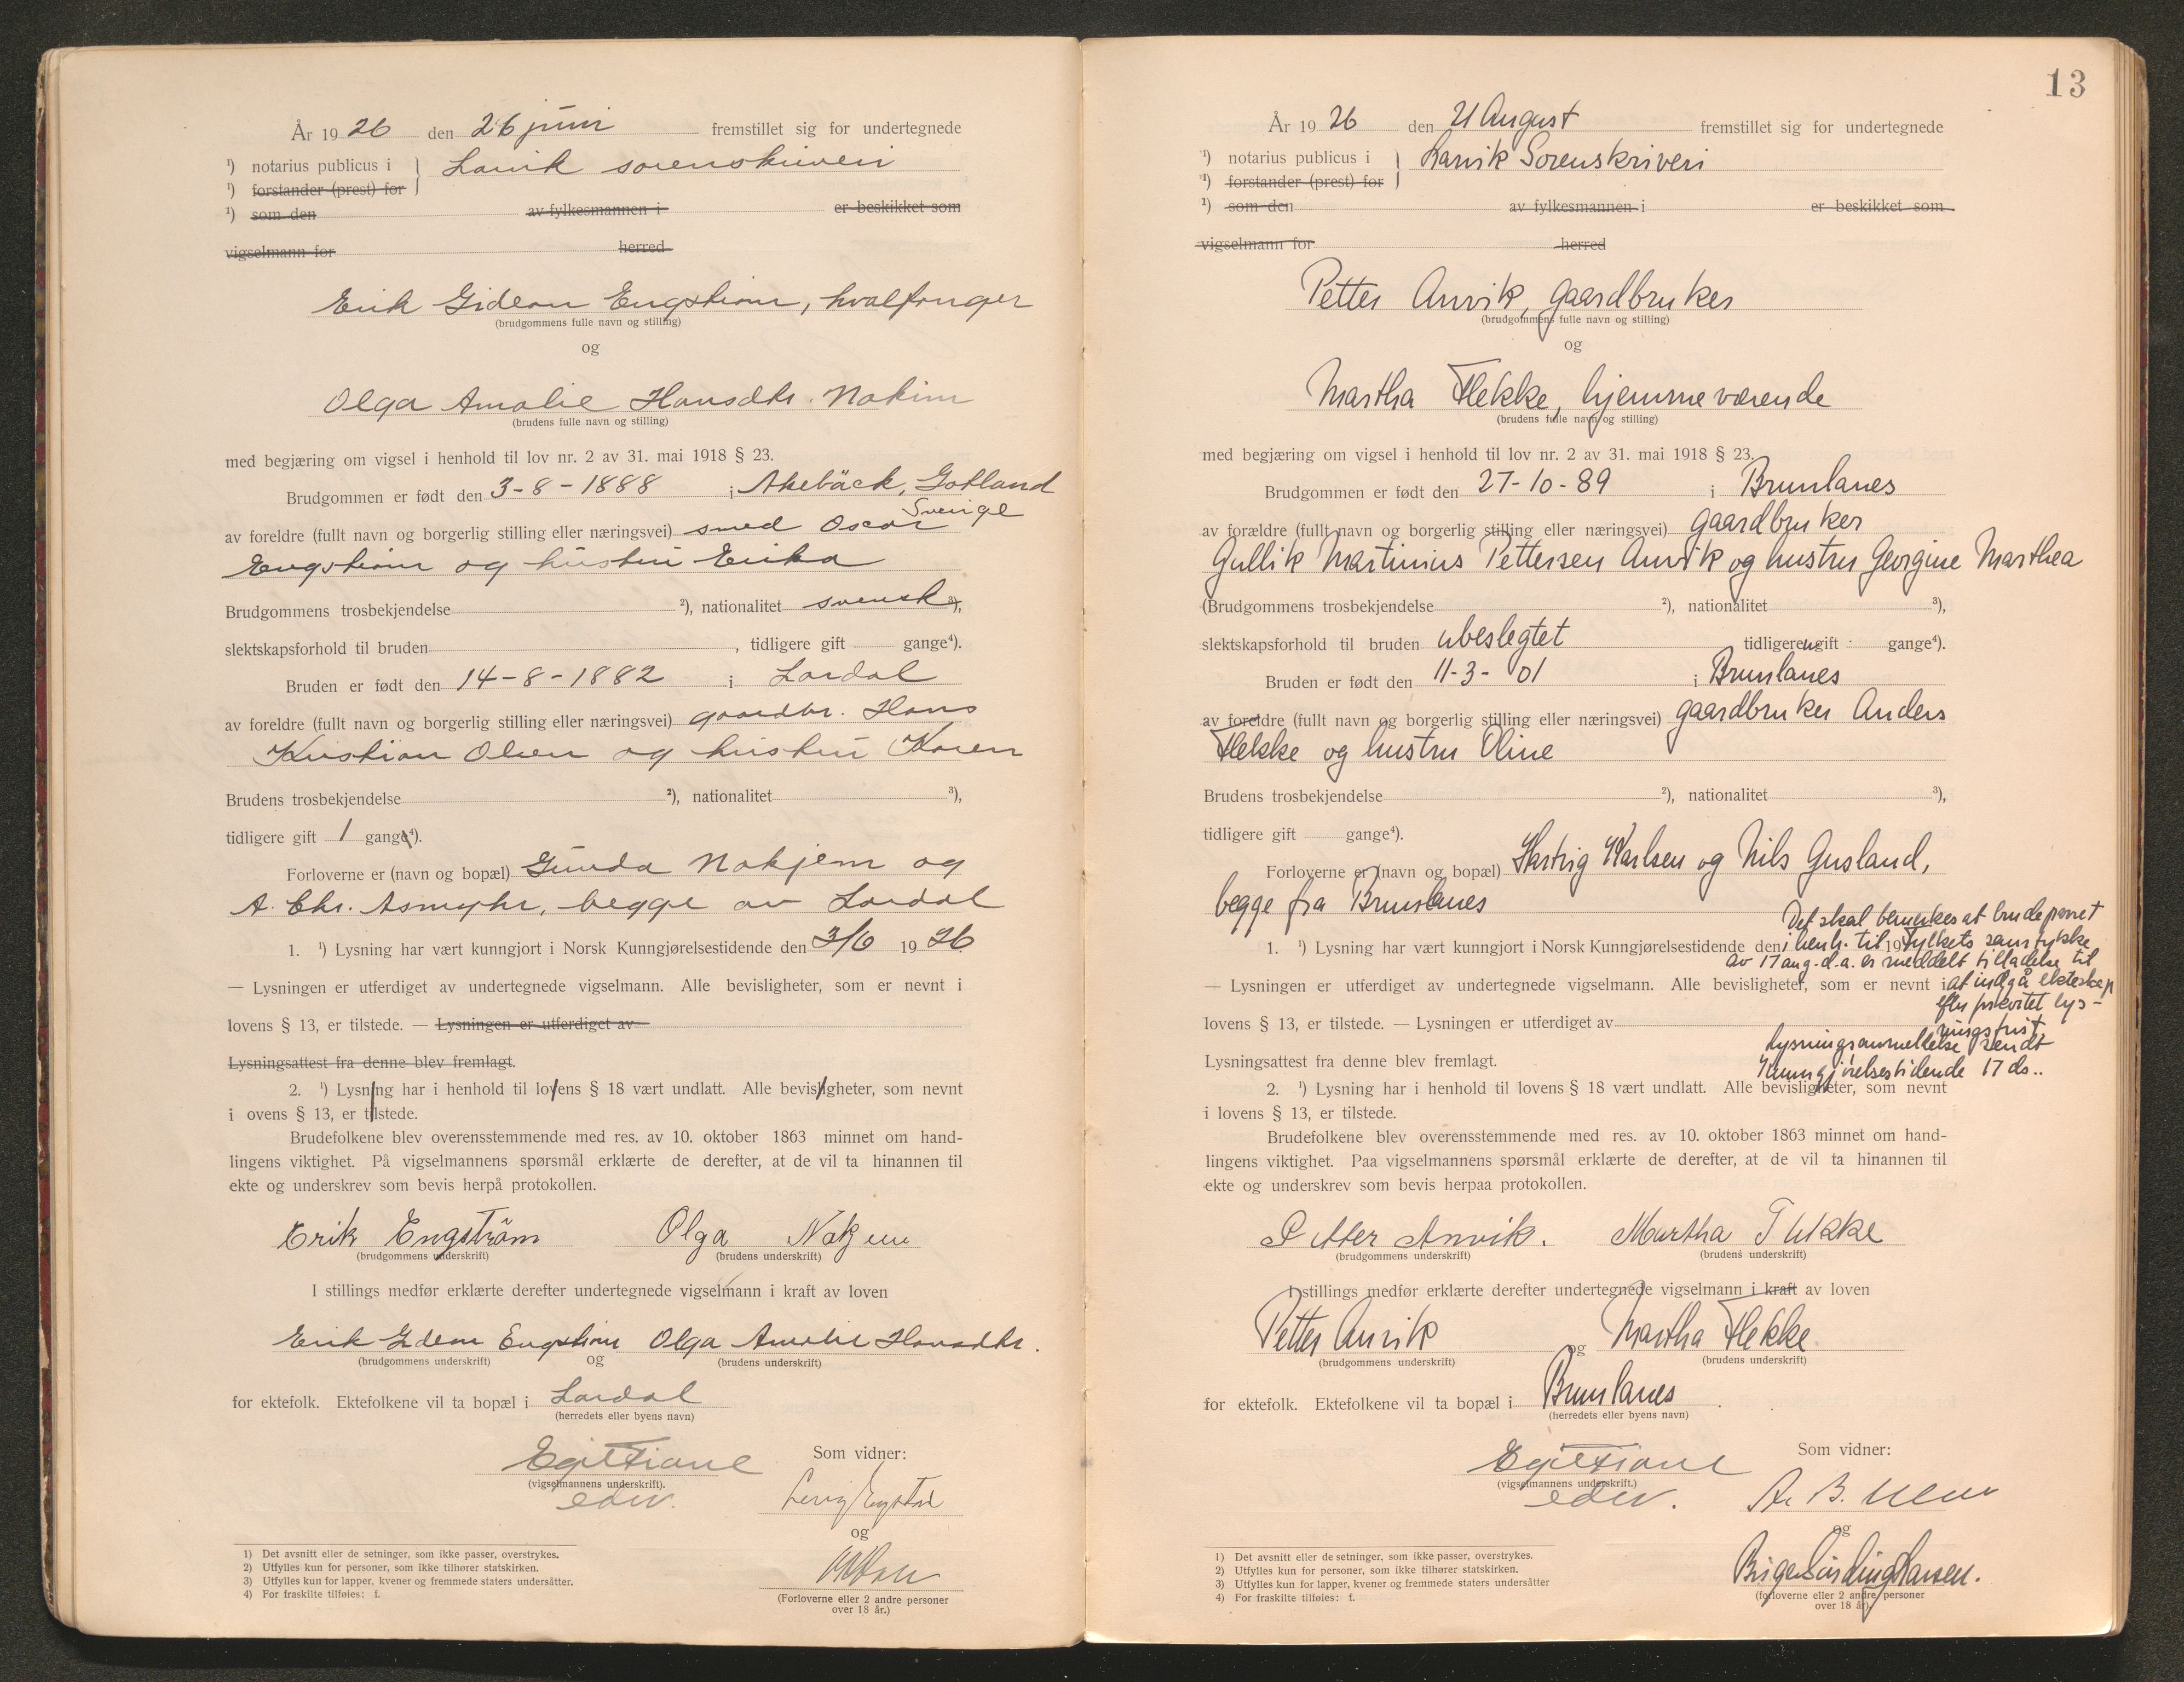 År 1926 den 26 juni fremstillet sig for undertegnede
¹) notarius publicus i } Larvik sorenskriveri
¹) forstander (prest) for
¹) som den av fylkesmannen i er beskikket som
vigselmann for herred
Erik Gideon Engstrøm, hvalfanger
(brudgommens fulle navn og stilling)
og
Olga Amalie Hansdtr. Nakim
(brudens fulle navn og stilling)
med begjæring om vigsel i henhold til lov nr. 2 av 31. mai 1918 § 23.
Brudgommen er født den 3-8-1888 i Akebäck, Gotland
Sverige
av foreldre (fullt navn og borgerlig stilling eller næringsvei) smed Oscar
Engstrøm og hustru Erika
Brudgommens trosbekjendelse ²), nationalitet svensk ³),
slektskapsforhold til bruden , tidligere gift gange⁴).
Bruden er født den 14-8-1882 i Lardal
av foreldre (fullt navn og borgerlig stilling eller næringsvei) gaardbr. Hans
Kristian Olsen og hustru Karen
Brudens trosbekjendelse ²), nationalitet ³),
tidligere gift 1 gange⁴).
Forloverne er (navn og bopæl) Gunda Nakjem og
A. Chr. Asmyhr, begge av Lardal
1. ¹) Lysning har vært kunngjort i Norsk Kunngjørelsestidende den 3/6 1926
— Lysningen er utferdiget av undertegnede vigselmann. Alle bevisligheter, som er nevnt i
lovens § 13, er tilstede. — Lysningen er utferdiget av
Lysningsattest fra denne blev fremlagt.
2. ¹) Lysning har i henhold til lovens § 18 vært undlatt. Alle bevisligheter, som nevnt
i ovens § 13, er tilstede.
Brudefolkene blev overensstemmende med res. av 10. oktober 1863 minnet om hand-
lingens viktighet. På vigselmannens spørsmål erklærte de derefter, at de vil ta hinannen til
ekte og underskrev som bevis herpå protokollen.
Erik Engström Olga Nakjem
(brudgommens underskrift) (brudens underskrift)
I stillings medfør erklærte derefter undertegnede vigselmann i kraft av loven
Erik Gideon Engstrøm Olga Amalie Hansdtr.
(brudgommens underskrift) og (brudens underskrift)
for ektefolk. Ektefolkene vil ta bopæl i Lardal
(herredets eller byens navn)
Som vidner:
(vigselmannens underskrift).
edv.
og
1) Det avsnitt eller de setninger, som ikke passer, overstrykes.
2) Utfylles kun for personer, som ikke tilhører statskirken.
3) Utfylles kun for lapper, kvener og fremmede staters undersåtter.
4) For fraskilte tilføles: f.
(Forloverne eller 2 andre personer
over 18 år.)
13
År 1926 den 21 August fremstillet sig for undertegnede
¹) notarius publicus i } Larvik Sorenskriveri
¹) forstander (prest) for
¹) som den av fylkesmannen i er beskikket som
vigselmann for herred
Petter Anvik, gaardbruker
(brudgommens fulle navn og stilling)
og
Martha Flekke, hjemmeværende
(brudens fulle navn og stilling)
med begjæring om vigsel i henhold til lov nr. 2 av 31. mai 1918 § 23.
Brudgommen er født den 27-10-89 i Brunlanes
av forældre (fullt navn og borgerlig stilling eller næringsvei) gaardbruker
Gullik Martinius Pettersen Anvik og hustru Georgine Marthea
(Brudgommens trosbekjendelse ²), nationalitet ³),
slektskapsforhold til bruden ubeslegtet tidligere ugift gange⁴).
Bruden er født den 11-3-01 i Brunlanes
av foreldre (fullt navn og borgerlig stilling eller næringsvei) gaardbruker Anders
Flekke og hustru Oline
Brudens trosbekjendelse ²), nationalitet ³),
tidligere gift gange⁴).
Forloverne er (navn og bopæl) Hartvig Karlsen og Nils Gusland,
begge fra Brunlanes
Det skal bemerkes at brudeparret
1. ¹) Lysning har vært kunngjort i Norsk Kunngjørelsestidende den 19
i henh. til Fylkets samtykke
av 17 aug. d.a. er meddelt tilladelse til
— Lysningen er utferdiget av undertegnede vigselmann. Alle bevisligheter, som er nevnt i
at indgå ekteskap
efter forkortet lys-
lovens § 13, er tilstede. — Lysningen er utferdiget av
ningsfrist
Lysningsanmeldelse sendt
Lysningsattest fra denne blev fremlagt.
Kunngjørelsestidende 17 ds..
2. ¹) Lysning har i henhold til lovens § 18 vært undlatt. Alle bevisligheter, som nevnt
i lovens § 13, er tilstede.
Brudefolkene blev overensstemmende med res. av 10. oktober 1863 minnet om hand-
lingens viktighet. Paa vigselmannens spørsmål erklærte de derefter, at de vil ta hinannen til
ekte og underskrev som bevis herpaa protokollen.
Petter Anvik. Martha Flekke
(brudgommens underskrift) (brudens underskrift)
I stillings medfør erklærte derefter undertegnede vigselmann i kraft av loven
Petter Anvik og Martha Flekke
(brudgommens underskrift) (brudens underskrift)
for ektefolk. Ektefolkene vil ta bopæl i Brunlanes
(herredets eller byens navn)
Som vidner:
(vigselmannens underskrift.)
edv.
og
Birger Sinding Larsen.
1) Det avsnitt eller de setninger, som ikke passer, overstrykes.
2) Utfylles kun for personer, som ikke tilhører statskirken.
3) Utfylles kun for lapper, kvener og fremmede staters undersåtter
4) For fraskilte tilføles: f.
(forloverne eller 2 andre personer
over 18 år).